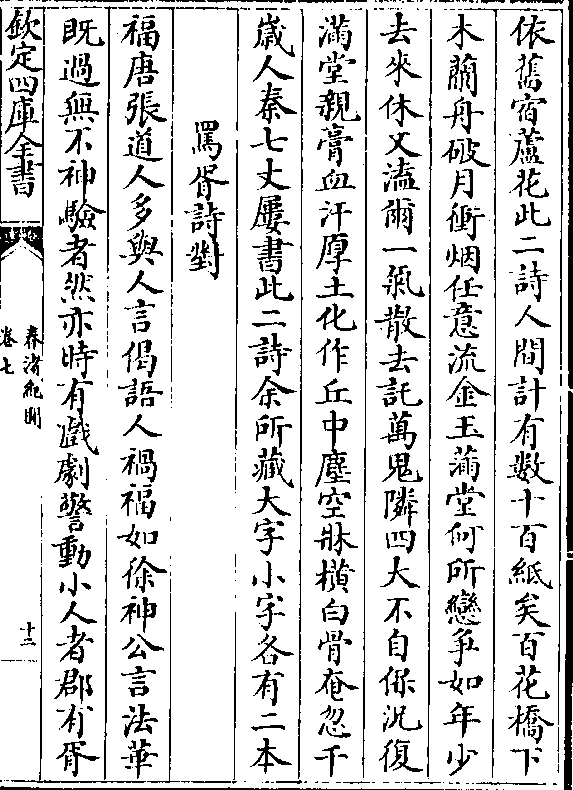 依舊宿蘆花此二詩人間計有數十百紙矣百花橋下
木蘭舟破月衝烟任意流金玉滿堂何所戀爭如年少
去來休又溘爾一氣散去託萬鬼隣四大不自保況復
滿堂親膏血汗厚土化作丘中塵空牀橫白骨奄忽千
歲人秦七丈屢書此二詩余所藏大字小字各有二本
罵胥詩對
福唐張道人多與人言偈語人禍福如徐神公言法華
既過無不神驗者然亦時有戲劇警動小人者郡有胥
欽定四庫全書
春渚紀聞
卷七
十二